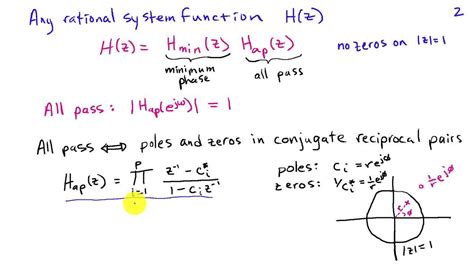 Any rational system function H(z) 2
H(z) = H_min(z) H_ap(z) no zeros on |z|=1
minimum phase all pass
All pass: |H_ap(e^{jω})| = 1
All pass ⟺ poles and zeros in conjugate reciprocal pairs
H_ap(z) = ∏_{i=1}^{P} (z^{-1} - c_i^*) / (1 - c_i z^{-1})
poles: c_i = re^{jø}
zeros: 1/c_i^* = 1/r e^{jø}
1/r e^{jø}
|z|=1